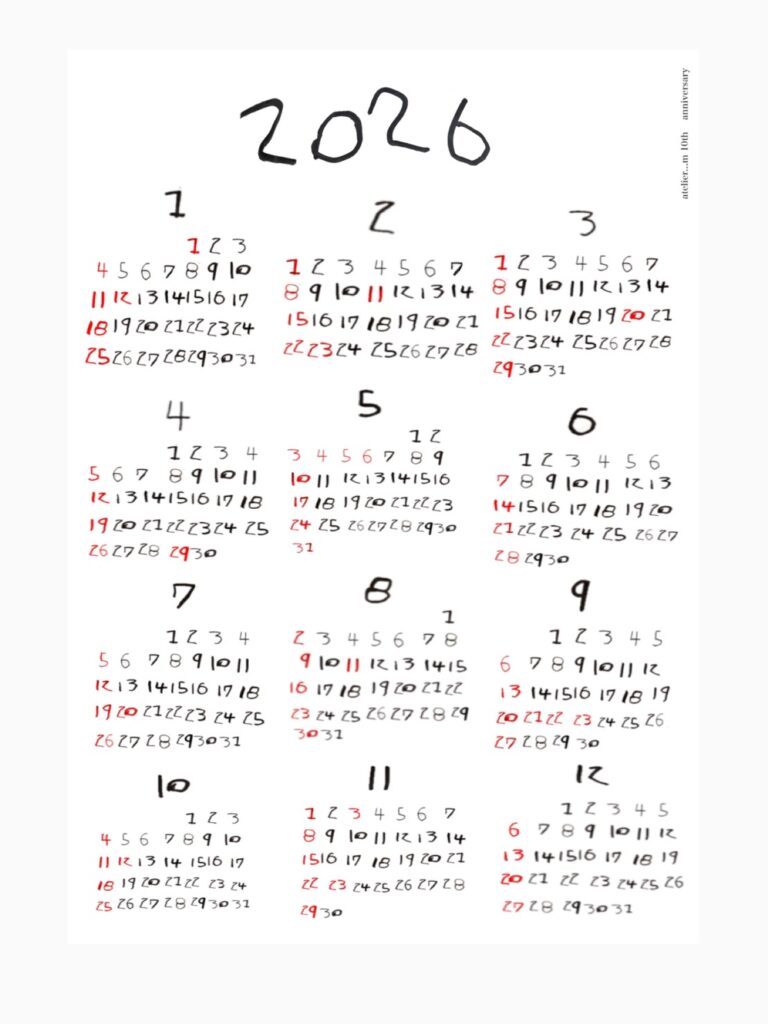 2026
atelier...m 10th anniversary
1
1 2 3
4 5 6 7 8 9 10
11 12 13 14 15 16 17
18 19 20 21 22 23 24
25 26 27 28 29 30 31
2
1 2 3 4 5 6 7
8 9 10 11 12 13 14
15 16 17 18 19 20 21
22 23 24 25 26 27 28
3
1 2 3 4 5 6 7
8 9 10 11 12 13 14
15 16 17 18 19 20 21
22 23 24 25 26 27 28
29 30 31
4
1 2 3 4
5 6 7 8 9 10 11
12 13 14 15 16 17 18
19 20 21 22 23 24 25
26 27 28 29 30
5
1 2
3 4 5 6 7 8 9
10 11 12 13 14 15 16
17 18 19 20 21 22 23
24 25 26 27 28 29 30
31
6
1 2 3 4 5 6
7 8 9 10 11 12 13
14 15 16 17 18 19 20
21 22 23 24 25 26 27
28 29 30
7
1 2 3 4
5 6 7 8 9 10 11
12 13 14 15 16 17 18
19 20 21 22 23 24 25
26 27 28 29 30 31
8
1
2 3 4 5 6 7 8
9 10 11 12 13 14 15
16 17 18 19 20 21 22
23 24 25 26 27 28 29
30 31
9
1 2 3 4 5
6 7 8 9 10 11 12
13 14 15 16 17 18 19
20 21 22 23 24 25 26
27 28 29 30
10
1 2 3
4 5 6 7 8 9 10
11 12 13 14 15 16 17
18 19 20 21 22 23 24
25 26 27 28 29 30 31
11
1 2 3 4 5 6 7
8 9 10 11 12 13 14
15 16 17 18 19 20 21
22 23 24 25 26 27 28
29 30
12
1 2 3 4 5
6 7 8 9 10 11 12
13 14 15 16 17 18 19
20 21 22 23 24 25 26
27 28 29 30 31